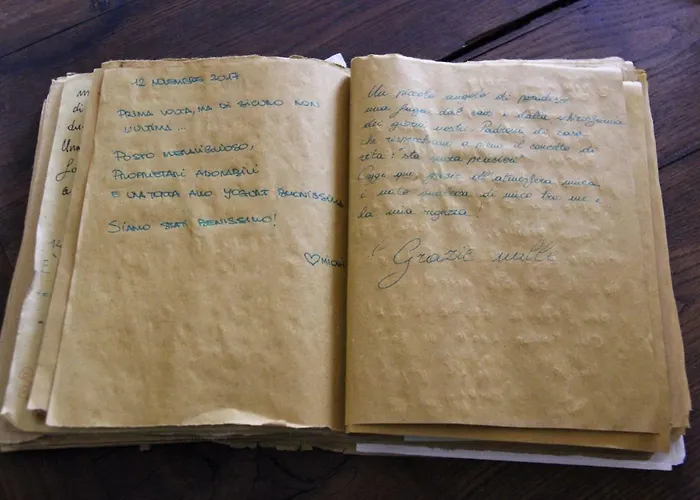 12 NOVEMBRE 2017
PRIMA VOLTA, MA DI SICURO NON
L'ULTIMA ...
POSTO MERAVIGLIOSO,
PROPRIETARI ADORABILI
E UNA TORTA ALLO YOGURT BUONISSIMA
SIAMO STATI BENISSIMO!
Un piccolo angolo di paradiso
una fuga dal caos e dalla
dei giorni nostri. Padroni di casa
che rispecchiano a pieno il concetto di
vita: "sta senza pensieri"
Oggi qui, grazie all'atmosfera unica,
è nato qualcosa di unico tra me e
la mia ragazza!
Grazie mille